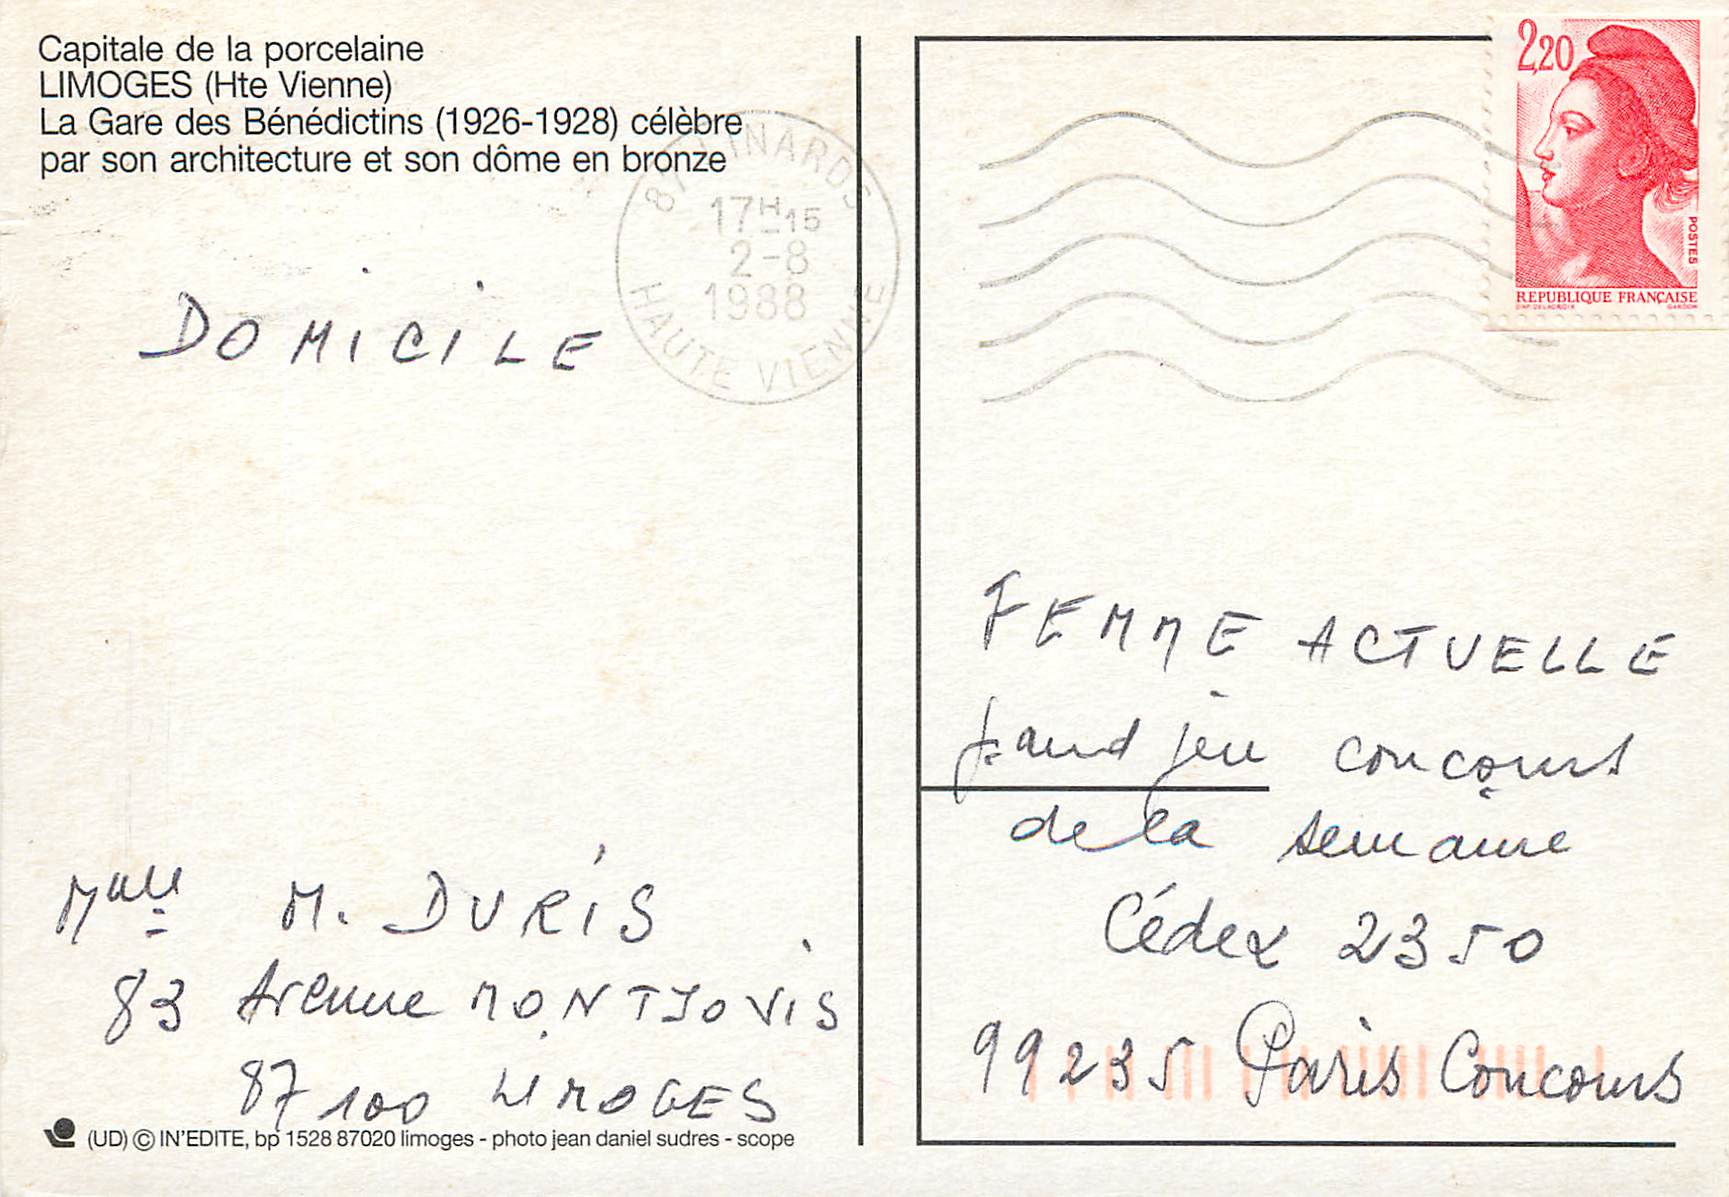 Capitale de la porcelaine
LIMOGES (Hte Vienne)
La Gare des Bénédictins (1926-1928) célèbre
par son architecture et son dôme en bronze
87 LINARDS
17H15
2-8
1988
HAUTE VIENNE
2,20
POSTES
REPUBLIQUE FRANÇAISE
DOMICILE
FEMME ACTUELLE
grand jeu concours
de la semaine
Cédex 2350
99235 Paris Concours
M. DURIS
83 Avenue MONTJOVIS
87100 LIMOGES
(UD) © IN'EDITE, bp 1528 87020 limoges - photo jean daniel sudres - scope